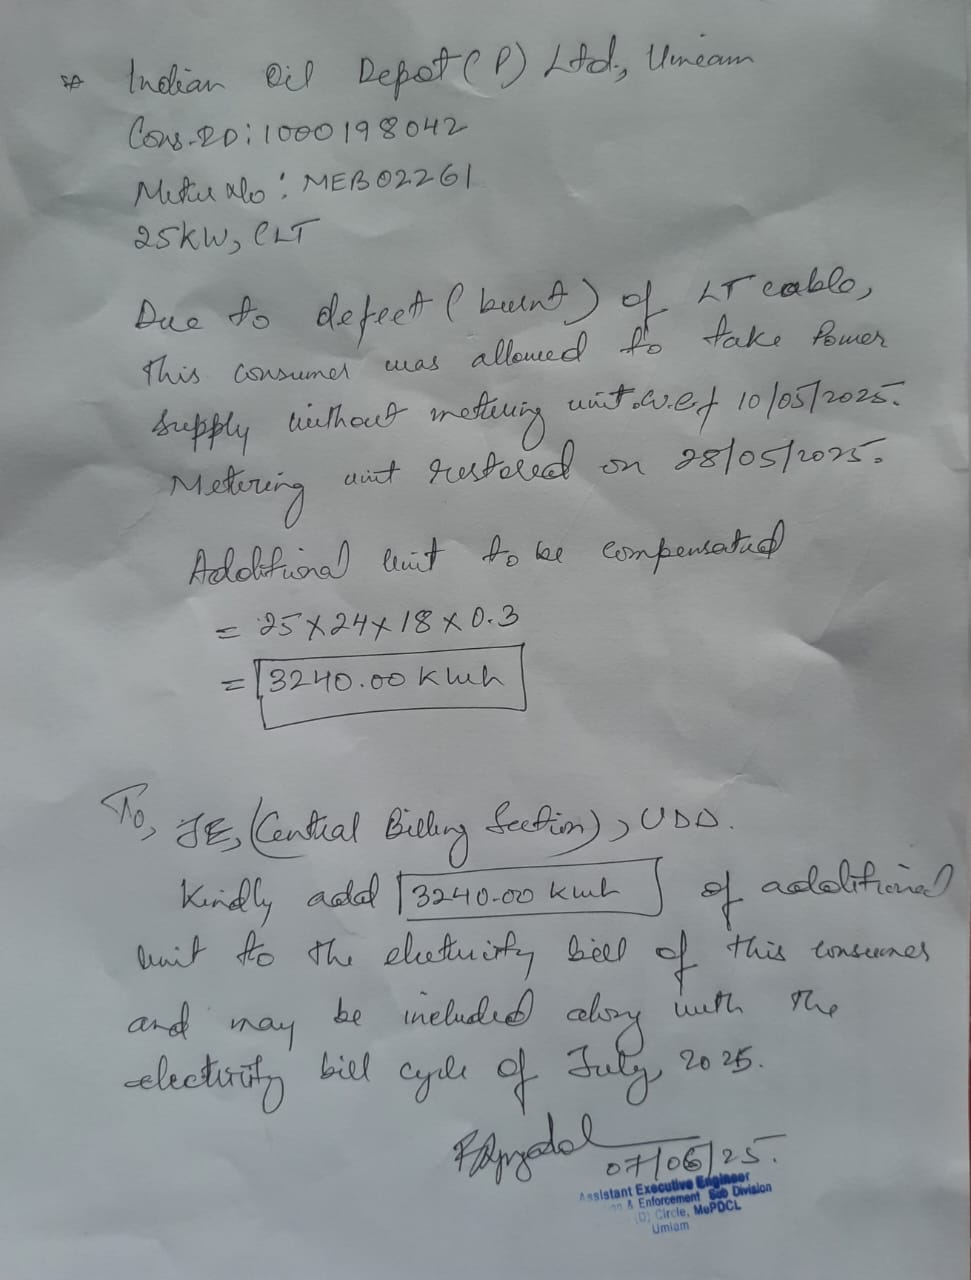 * Indian Oil Depot (P) Ltd., Umiam
Cons.ID: 1000198042
Meter No: MEB02261
25KW, CLT
Due to defect (burnt) of LT cable,
this consumer was allowed to take Power
supply without metering unit w.e.f 10/05/2025.
Metering unit restored on 28/05/2025.
Additional unit to be compensated
= 25 X 24 X 18 X 0.3
= 3240.00 Kwh
To, JE, (Central Billing Section), UDD.
Kindly add 3240.00 kwh of additional
unit to the electricity bill of this consumer
and may be included along with the
electricity bill cycle of July, 2025.
07/06/25.
Assistant Executive Engineer
& Enforcement Sub Division
(D) Circle, MePDCL
Umiam